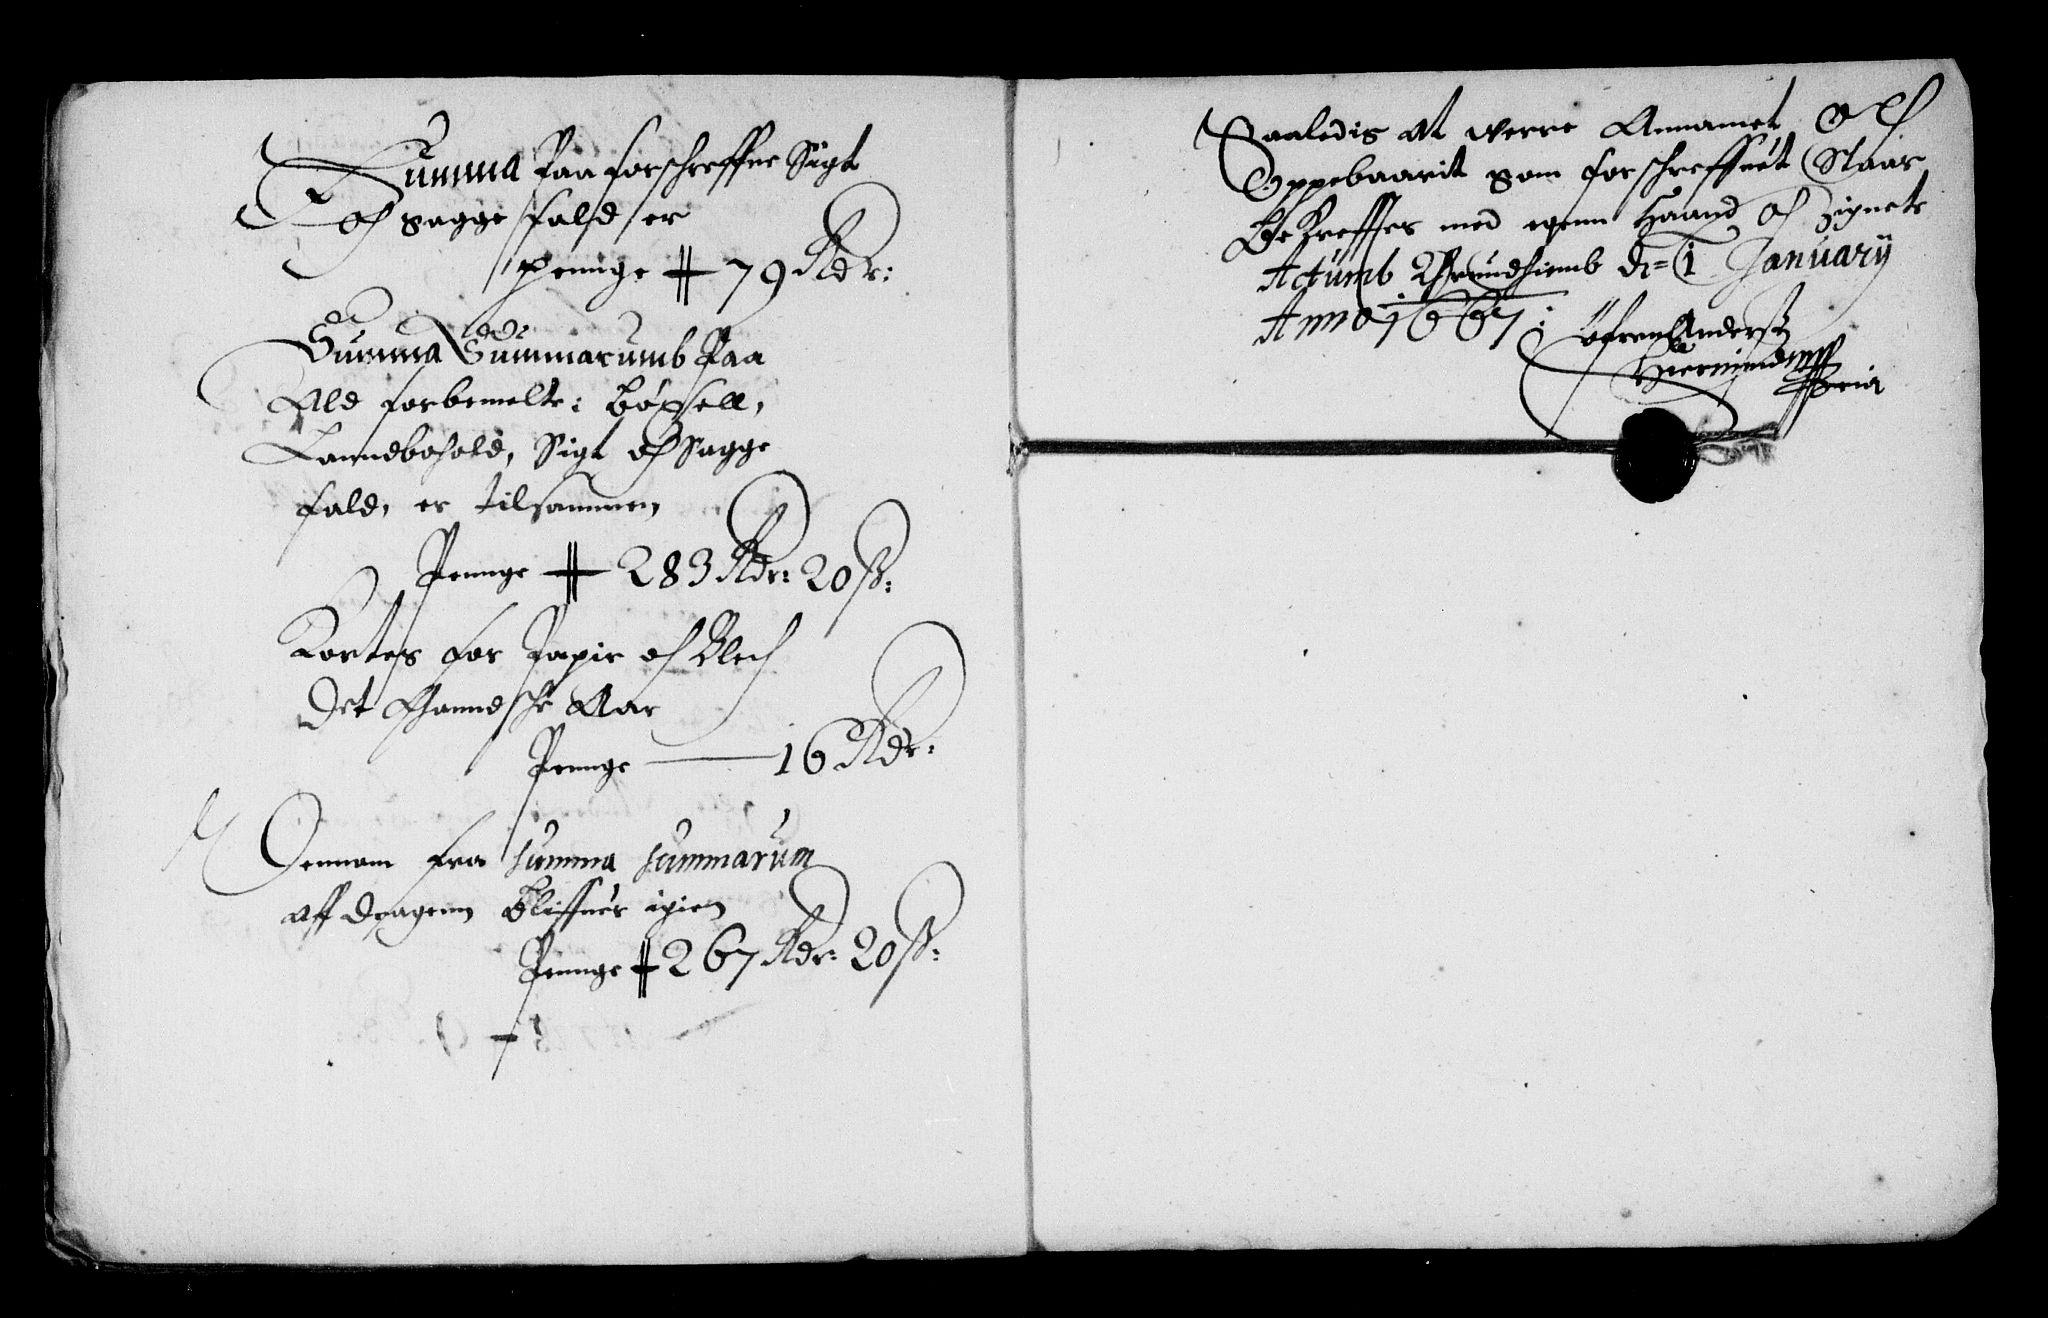 Summa Paa forschreffne Sigt
och sagge fald er
penge 79 Rdr:
Summa Summarumb Paa
Ald forbemelte: Bøxsell,
Landbohold, Sigt och Sagge
fald, er tilsammen
Penge 283 Rdr: 20 ß:
Kortes for Papir och Blech
Det gandsche Aar
Penge 16 Rdr:
fra summa summarum
aff dragenn Bliffuer igien
Penge 267 Rdr: 20 ß:
Saaledis at werre Annamet och
Oppebaarit som forschreffuet Staar
Bekreffter med egenn Haand och Zignete
Actumb Thrundhiemb d: 1 January
Anno 1667:
Anderß